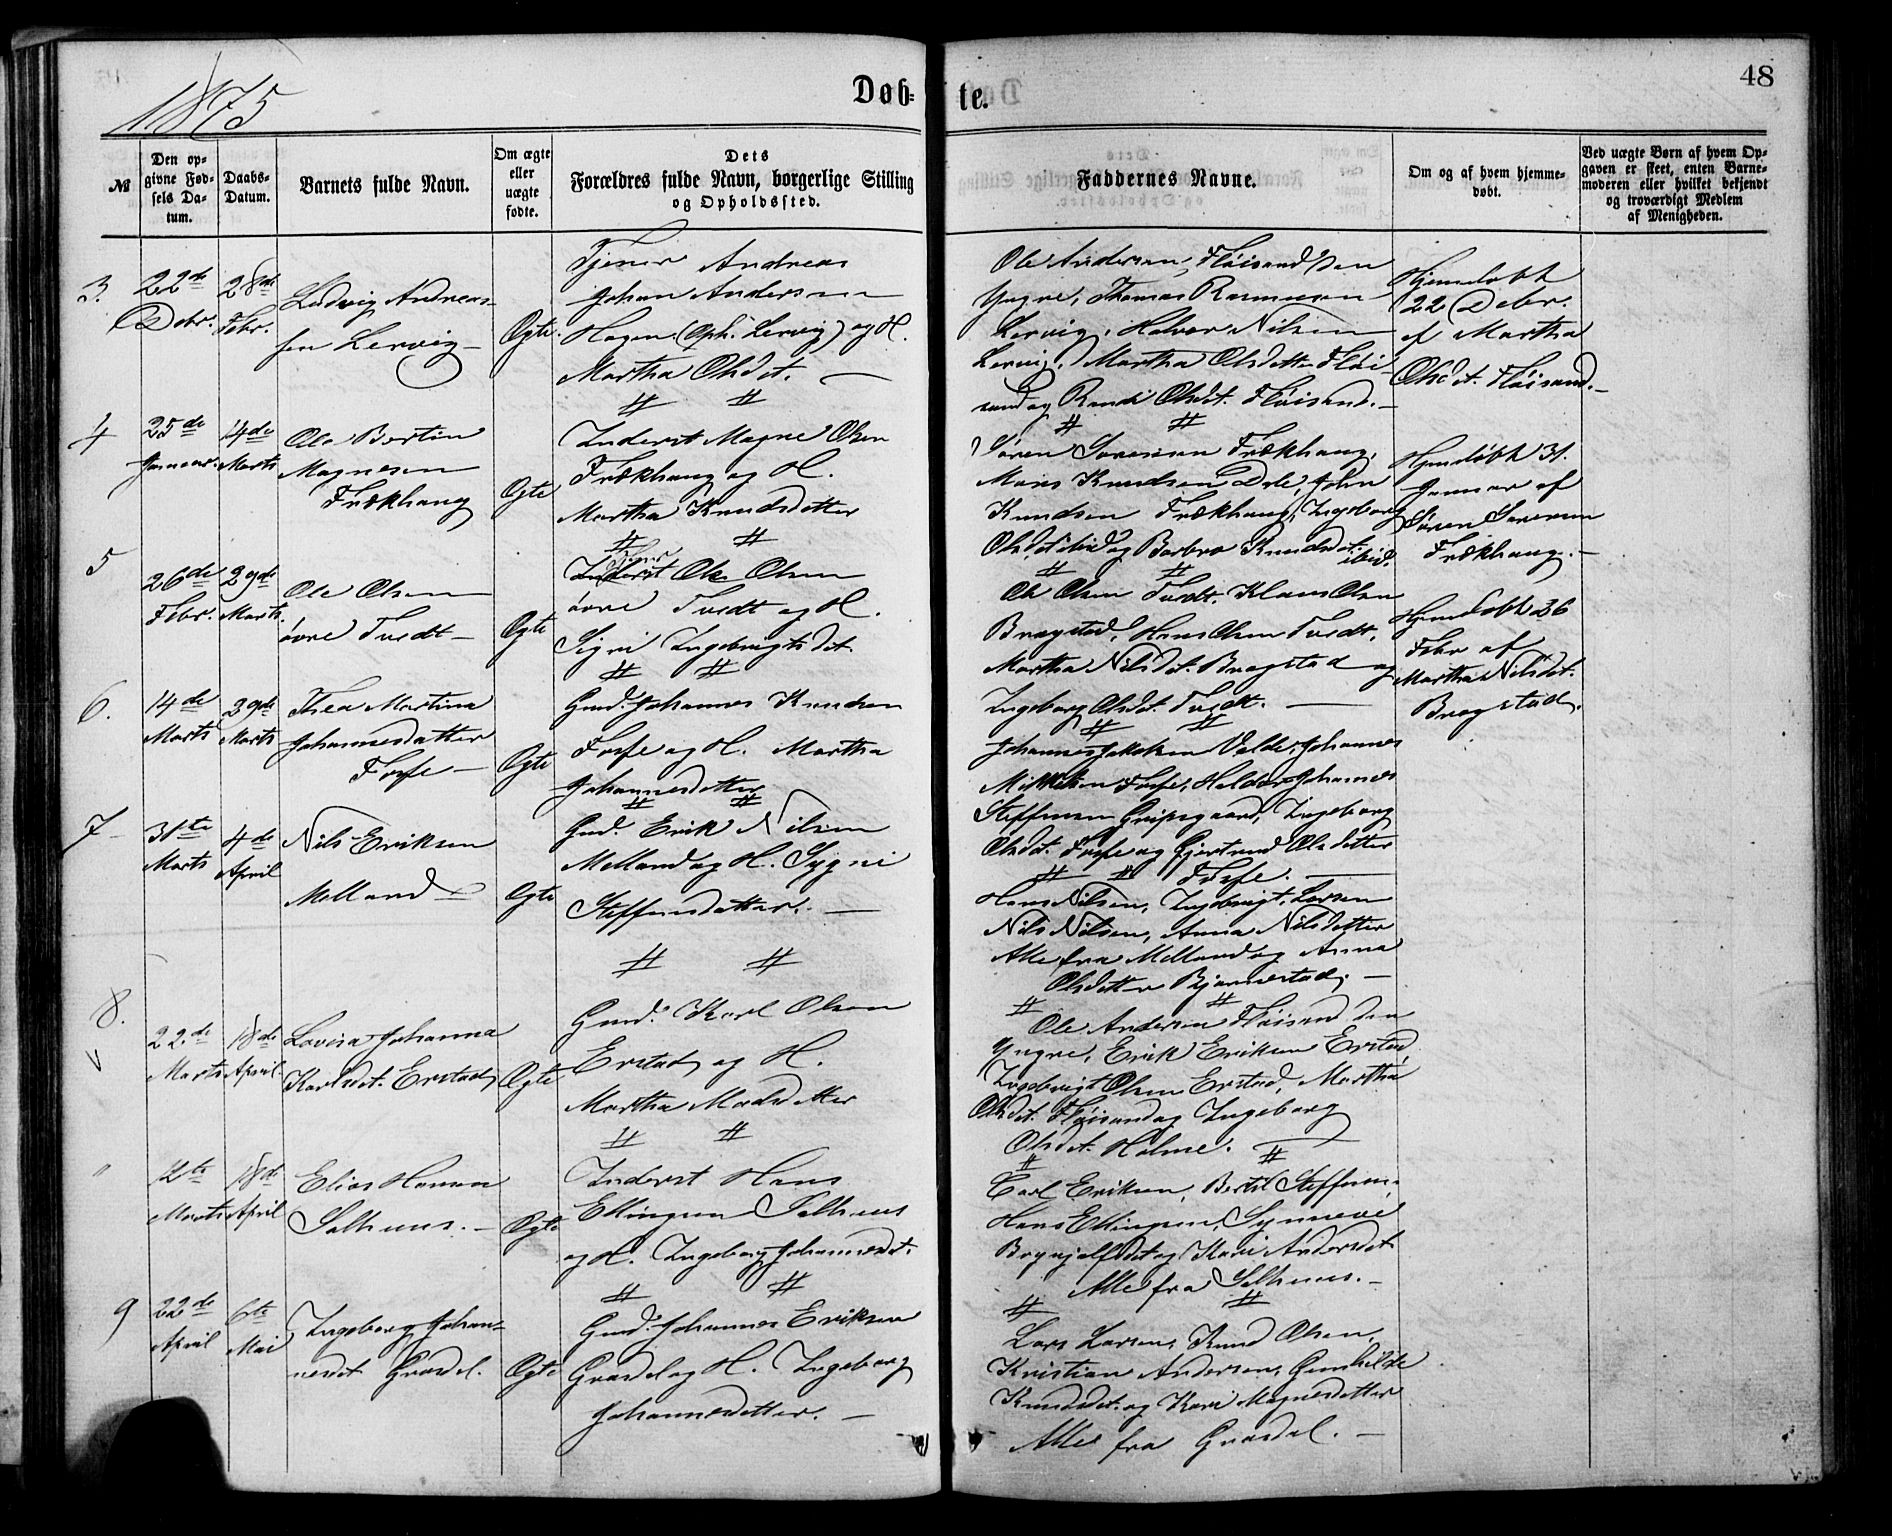 1875
Døb-
te.
48
№
Den op-
givne Fød-
sels Da-
tum.
Daabs-
Datum.
Barnets fulde Navn.
Om ægte
eller
uægte
fødte.
Dets
Forældres fulde Navn, borgerlige Stilling
og Opholdssted.
Faddernes Navne.
Om og af hvem hjemme-
døbt.
Ved uægte Børn af hvem Op-
gaven er skeet, enten Barne-
moderen eller hvilket bekjendt
og troværdigt Medlem
af Menigheden.
3.
22de
Debr.
28de
Febr.
Ludvig Andreas-
sen Lervig
Ægte.
Tjener Andreas
Johan Andersen
Hagen (Oph. Lervig) og H.
Martha Olsdet.
Ole Andersen Fløisand den
Yngre, Thomas Rasmussen
Lervig, Halvor Nilsen
Lervig, Martha Olsdett. Fløi-
sand og Randi Olsdet. Fløisand.
Hjemdøbt
22 Debr.
af Martha
Olsdet. Fløisand.
4
25de
Januar.
14de
Marts
Ole Bertin
Magnesen
Frækhaug
Ægte
Inderst Magne Olsen
Frækhaug og H.
Martha Knudsdetter
Søren Sørensen Frækhaug,
Mons Knudsen Dale, John
Knudsen Frækhaug, Ingeborg
Olsdet ibid og Barbro Knudsdet. ibid.
Hjemdøbt 31.
Januar af
Søren Sørensen
Frækhaug.
5
26de
Febr.
29de
Marts.
Ole Olsen
øvre Tvedt
Ægte
Inderst Ole Olsen
øvre Tvedt og H.
Sigri Ingebrigtsdet.
Ole Olsen Tvedt, Klaus Olsen
Bragstad, Hans Olsen Tvedt,
Martha Nilsdet. Bragstad og
Ingeborg Olsdet. Tvedt.
Hjemdøbt 26
Febr af
Martha Nilsdet.
Bragstad.
6.
14de
Marts
29de
Marts
Thea Martina
Johannesdatter
Fosse
Ægte
Gmd. Johannes Knudsen
Fosse og H. Martha
Johannesdetter
Johannes Jakobsen Valde, Johannes
Mikkelsen Fosse, Haldor Johannes
Steffensen Gripsgaard, Ingeborg
Olsdet. Fosse og Gjertrud Olsdetter
Fosse.
7
31te
Marts
4de
April
Nils Eriksen
Melland
Ægte
Gmd. Erik Nilsen
Melland og H. Sygni
Steffensdatter.
Hans Nilsen, Ingebrigt Larsen
Nils Nilsen, Anna Nilsdetter
Alle fra Melland og Anna
Olsdetter Bjørnestad.
8.
22de
Marts
18de
April
Lovisa Johanna
Karlsdet. Erstad
Ægte
Gmd. Karl Olsen
Erstad og H.
Martha Madsdetter
Ole Andersen Fløisand den
Yngre, Erik Eriksen Erstad,
Ingebrigt Olsen Erstad, Martha
Olsdet. Fløisand og Ingeborg
Olsdet. Holme.
"
12te
Marts
18de
April
Elias Hansen
Salhuus.
Ægte
Inderst Hans
Ellingsen Salhuus
og H. Ingeborg Johannesdet.
Carl Eriksen, Bertil Steffensen,
Hans Ellingsen, Synneve
Brynjolfsdet og Kari Andersdet.
Alle fra Salhuus.
9
22de
April
6te
Mai
Ingeborg Johan-
nesdet Grasdal.
Ægte
Gmd. Johannes Eriksen
Grasdal og H. Ingeborg
Johannesdetter.
Lars Larsen, Knud Olsen,
Kristian Andersen, Gunhilde
Knudsdet. og Kari Magnesdetter
Alle fra Grasdal.